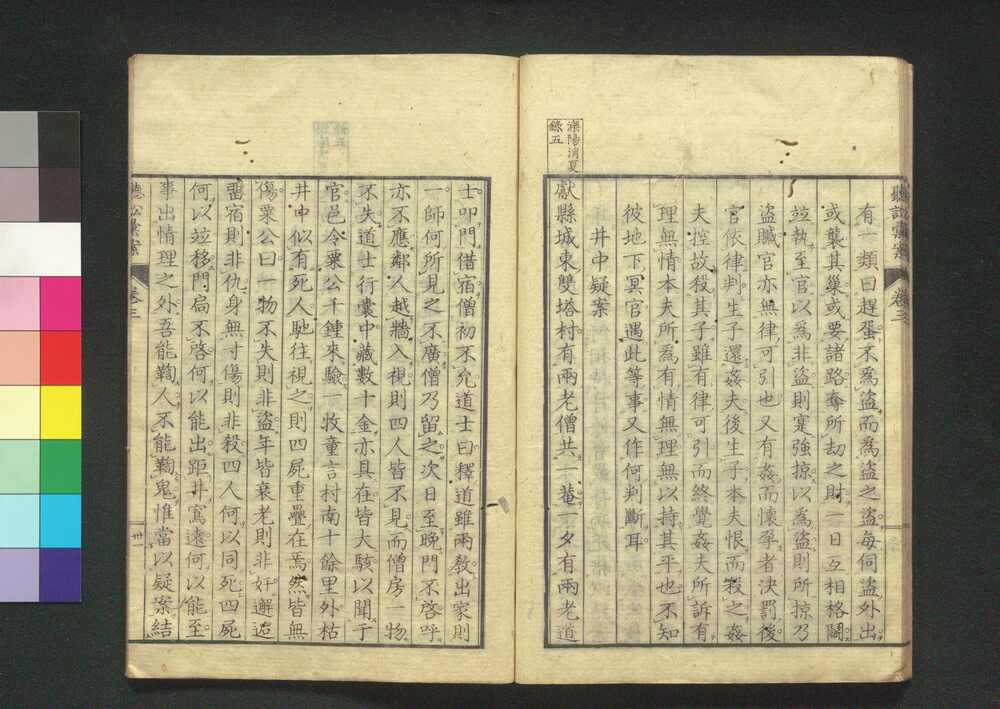 聽訟彙案 卷三
有一類曰趕蛋不為盜而為盜之盜每伺盜外出
或襲其巢或要諸路奪所劫之財一日互相格鬬
竝執至官以為非盜則寔強掠以為盜則所掠乃
盜贓官亦無律可引也又有姦而懷孕者決罰後
官依律判生子還姦夫後生子本夫恨而殺之姦
夫控故殺其子雖有律可引而終覺姦夫所訴有
理無情本夫所為有情無理無以持其平也不知
彼地下冥官遇此等事又作何判斷耳
井中疑案
灤陽消夏
錄五
獻縣城東雙塔村有兩老僧共一菴一夕有兩老道
士叩門借宿僧初不允道士曰釋道雖兩教出家則
一師何所見之不廣僧乃留之次日至晚門不啓呼
亦不應鄰人越牆入視則四人皆不見而僧房一物
不失道士行囊中藏數十金亦具在皆大駭以聞于
官邑令粟公千鍾來驗一牧童言村南十餘里外枯
井中似有死人馳往視之則四屍重疊在焉然皆無
傷粟公曰一物不失則非盜年皆衰老則非奸邂逅
畱宿則非仇身無寸傷則非殺四人何以同死四屍
何以竝移門扃不啓何以能出距井窵遠何以能至
事出情理之外吾能鞫人不能鞫鬼惟當以疑案結
聽訟彙案 卷三 卅一